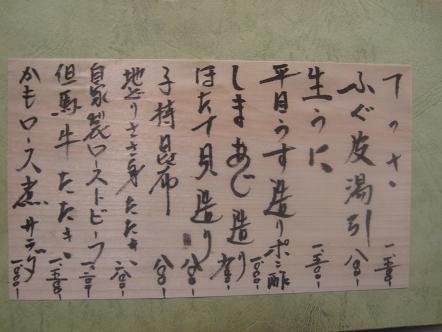 てっさ 一、五〇〇-
ふぐ皮湯引 八〇〇-
生うに 一、五〇〇-
平目うす造りポン酢 一、〇〇〇-
しまあじ造り 九〇〇-
ほたて貝造り 八〇〇-
子持昆布 八〇〇-
地どりささ身たたき 六〇〇-
自家製ローストビーフ
但馬牛たたき 一、五〇〇-
かもロース煮サラダ 一、〇〇〇-